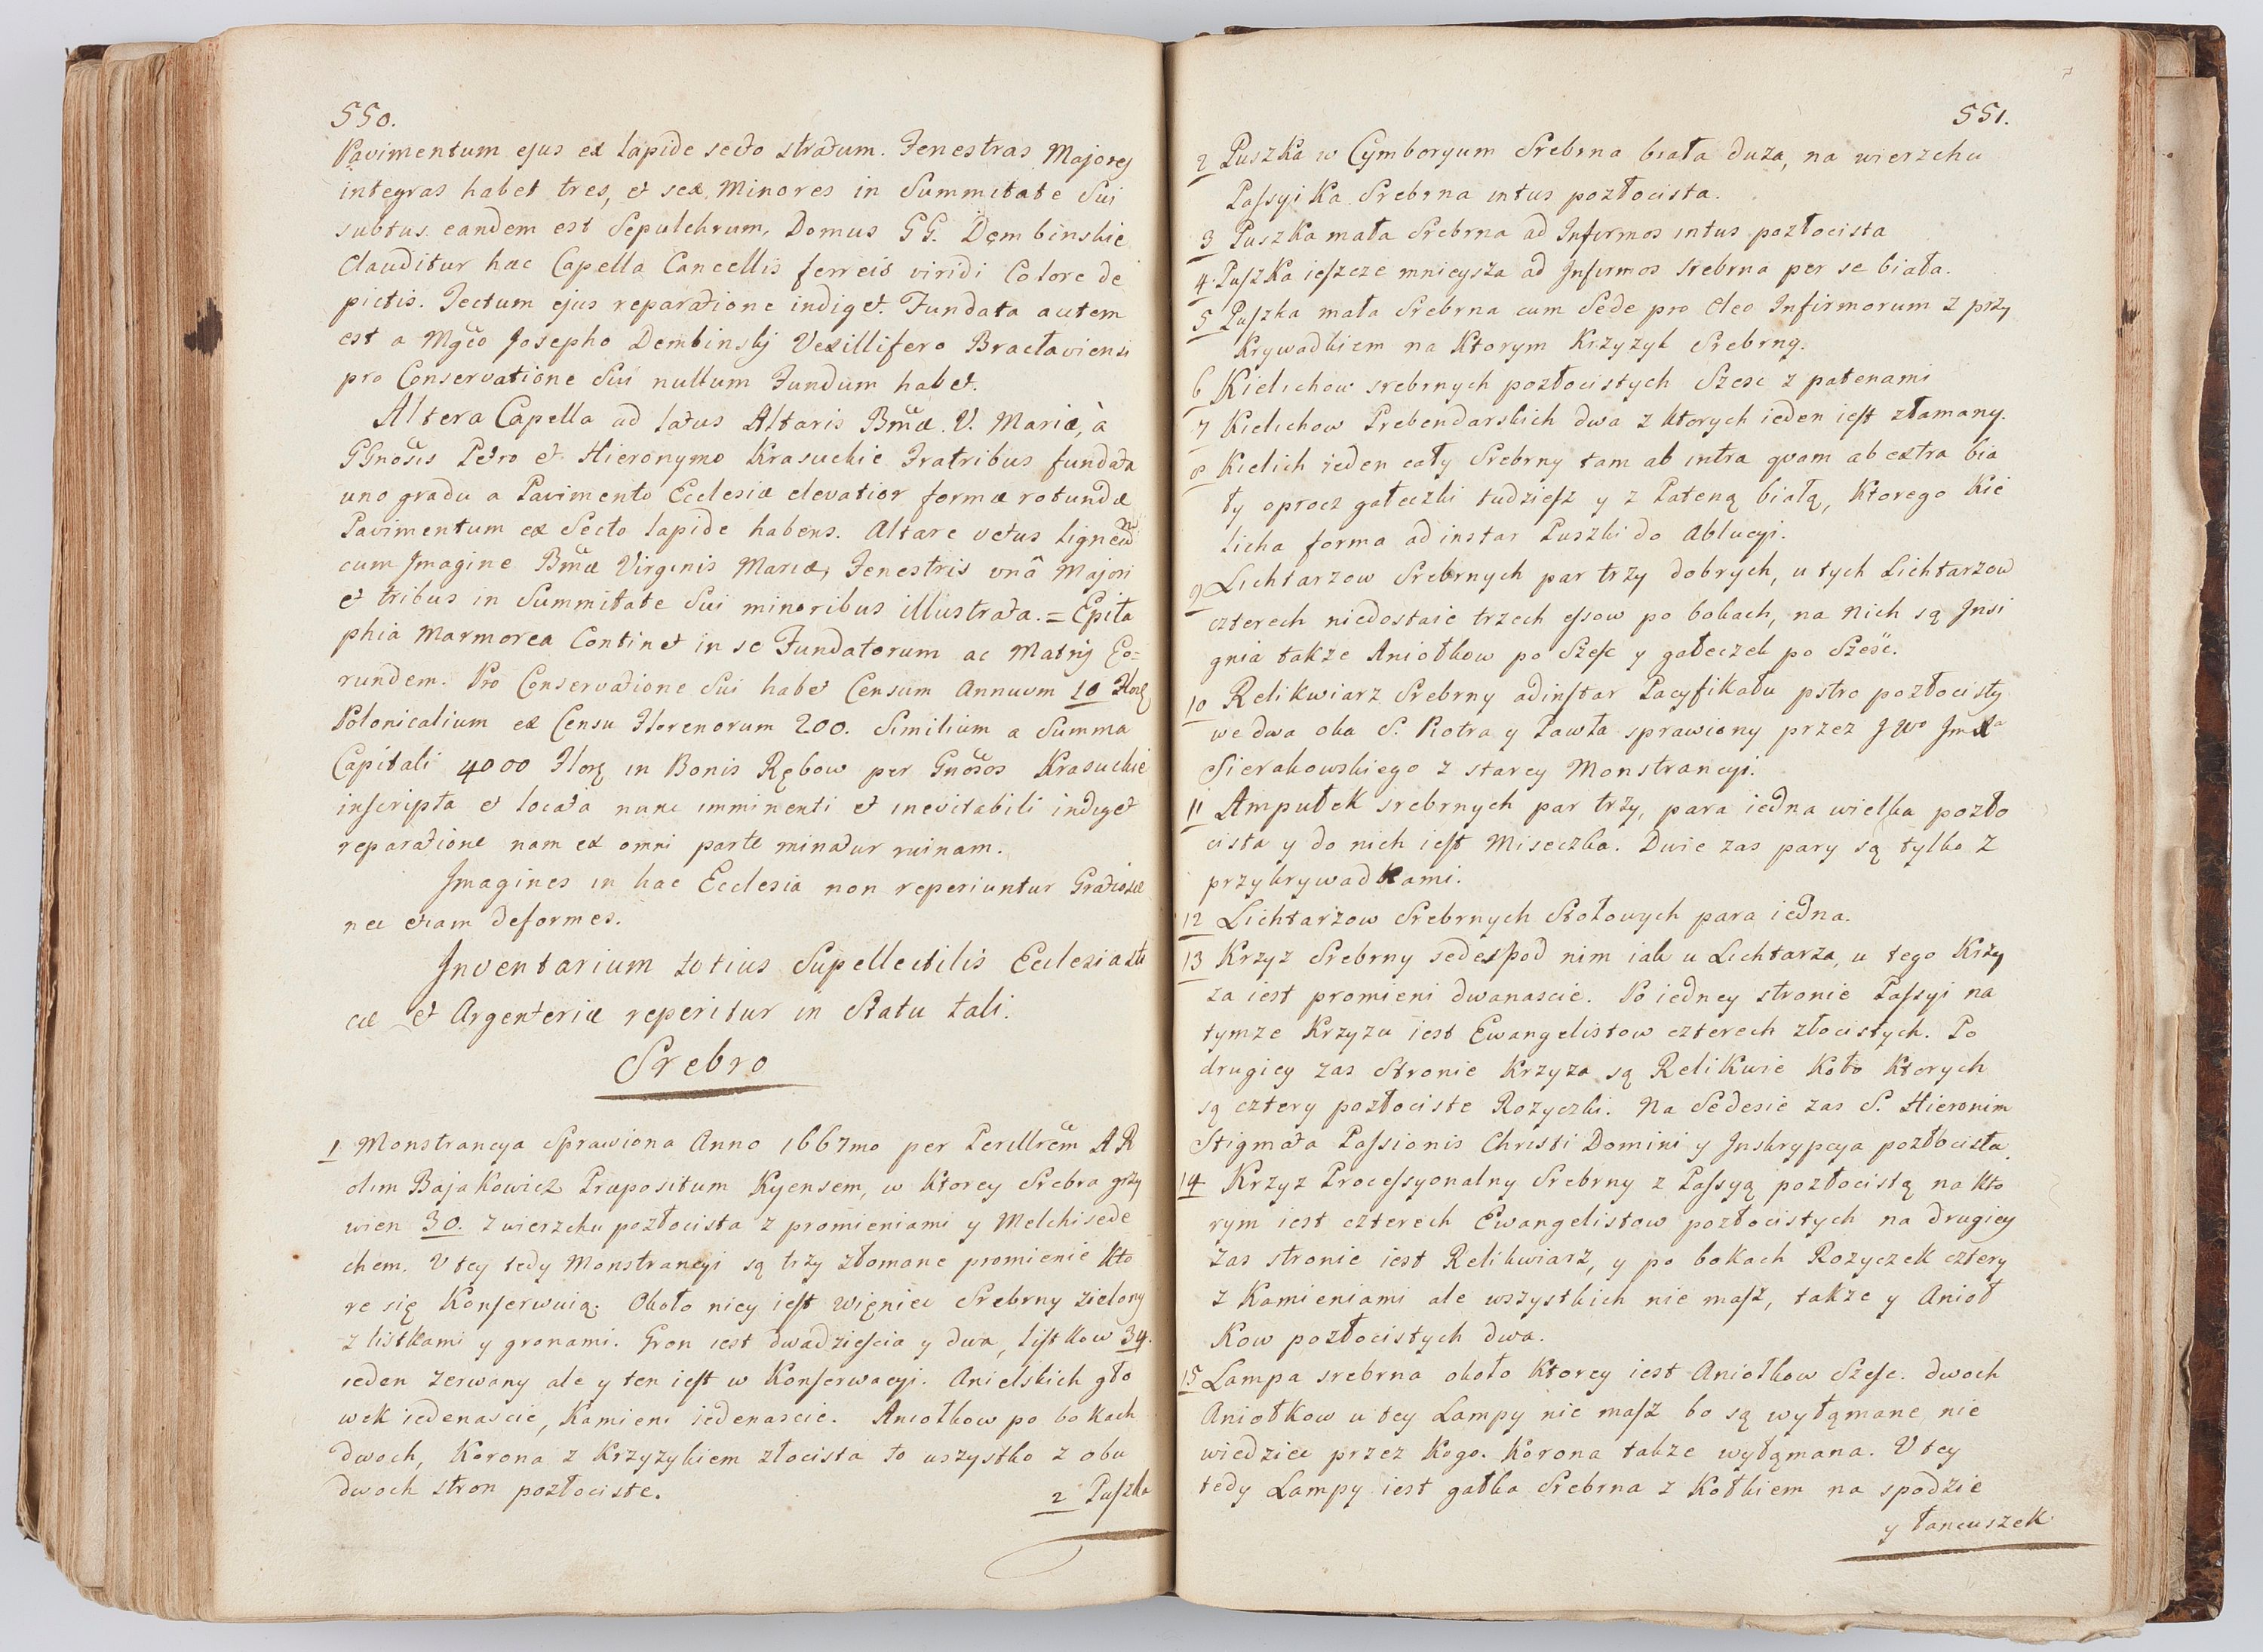 550.
Pavimentum ejus ex lapide secto stratum. Fenestras Majores
integras habet tres, et sex Minores in Summitate Sui
subtus eandem est Sepulchrum, Domus GG. Dęmbinskie
Clauditur hac Capella Cancellis ferreis viridi Colore de
pictis. Tectum ejus reparatione indiget. Fundata autem
est a Mgco Josepho Dembinskj Vexillifero Bracłaviensi
pro Conservatione Sui nullum Fundum habet.
Altera Capella ad latus Altaris Bmæ. V. Mariæ, à
GGnosis Petro et Hieronymo Krasuckie Fratribus fundata
uno gradu a Pavimento Ecclesiæ elevatior formæ rotundæ
Pavimentum ex Secto lapide habens. Altare vetus ligneum
cum Imagine Bmæ Virginis Mariæ, Fenestris unâ Majori
et tribus in Summitate Sui minoribus illustrata. = Epita
phia Marmorea Continet in se Fundatorum ac Matris Eo=
rundem. Pro Conservatione Sui habet Censum Annuum 10 Flor.
Polonicalium ex Censu Florenorum 200. Similium a Summa
Capitali 4000 Flor. in Bonis Rębow per Gnosos Krasuckie
inscripta et locata nunc imminenti et inevitabili indiget
reparatione nam ex omni parte minatur ruinam.
Imagines in hac Ecclesia non reperiuntur Gratiosæ
nec etiam deformes.
Inventarium totius Supellectilis Ecclesiasti
cæ et Argenteriæ reperitur in Statu tali.
Srebro
1 Monstrancya Sprawiona Anno 1667mo per Perillrem AR
dim Bajakowicz Præpositum Kyensem, w ktorey Srebra grzy
wien 30. z wierzchu pozłocista z promieniami y Melchisede
chem. U tey tedy Monstrancyi są trzy złomane promienie kto
re się Konserwuią. Około niey iest Więniec Srebrny zielony
z listkami y gronami. Gron iest dwadziescia y dwa, listkow 34.
ieden zerwany ale y ten iest w Konserwacyi. Anielskich gło
wek iedenascie, Kamieni iedenascie. Aniołkow po bokach
dwoch, Korona z Krzyzykiem złocista to wszystko z obu
dwoch stron pozłociste.
2 Puszka
551.
2 Puszka w Cymboryum Srebrna biała duza, na wierzchu
Passyika Srebrna intus pozłocista.
3 Puszka mała Srebrna ad Infirmos intus pozłocista
4. Puszka ieszcze mnieysza ad Infirmos srebrna per se biała.
5 Puszka mała Srebrna cum Sede pro Oleo Infirmorum z przy
krywadkiem na ktorym Krzyzyk Srebrny.
6 Kielichow srebrnych pozłocistych Szesc z patenami
7 Kielichow Prebendarskich dwa z ktorych ieden iest złamany.
8 Kielich ieden cały Srebrny tam ab intra qvam ab extra bia
ły oprocz gałeczki tudziesz y z Pateną białą, ktorego Kie
licha forma ad instar Puszki do Ablucyi.
9 Lichtarzow Srebrnych par trzy dobrych, u tych Lichtarzow
czterech niedostaie trzech essow po bokach, na nich są Insi
gnia takze Aniołkow po Szesc y gałeczek po Szesc.
10 Relikwiarz Srebrny adinstar Pacyfikału pstro pozłocisty
we dwa oka S. Piotra y Pawła sprawiony przez J Wo Jmxa
Sierakowskiego z starey Monstrancyi.
11 Ampułek srebrnych par trzy, para iedna wielka pozło
cista y do nich iest Miseczka. Dwie zas pary są tylko z
przykrywadkami.
12 Lichtarzow Srebrnych Stołowych para iedna.
13 Krzyz Srebrny sedes pod nim iak u Lichtarza, u tego Krzy
za iest promieni dwanascie. Po iedney stronie Passyi na
tymze Krzyzu iest Ewangelistow czterech złocistych. Po
drugiey zas Stronie Krzyza są Relikwie koło ktorych
są cztery pozłociste Rozyczki. Na Sedesie zas S. Hieronim
Stigmata Passionis Christi Domini y Inskrypcya pozłocista.
14 Krzyz Processyonalny Srebrny z Passyą pozłocistą na kto
rym iest czterech Ewangelistow pozłocistych na drugiey
zas stronie iest Relikwiarz, y po bokach Rozyczek cztery
z Kamieniami ale wszystkich nie masz, takze y Anioł
kow pozłocistych dwa.
15 Lampa srebrna około ktorey iest Aniołkow Szesc. dwoch
Aniołkow u tey Lampy nie masz bo są wyłąmane nie
wiedziec przez kogo. Korona takze wyłąmana. U tey
tedy Lampy iest gałka Srebrna z Kołkiem na spodzie
y łancuszek